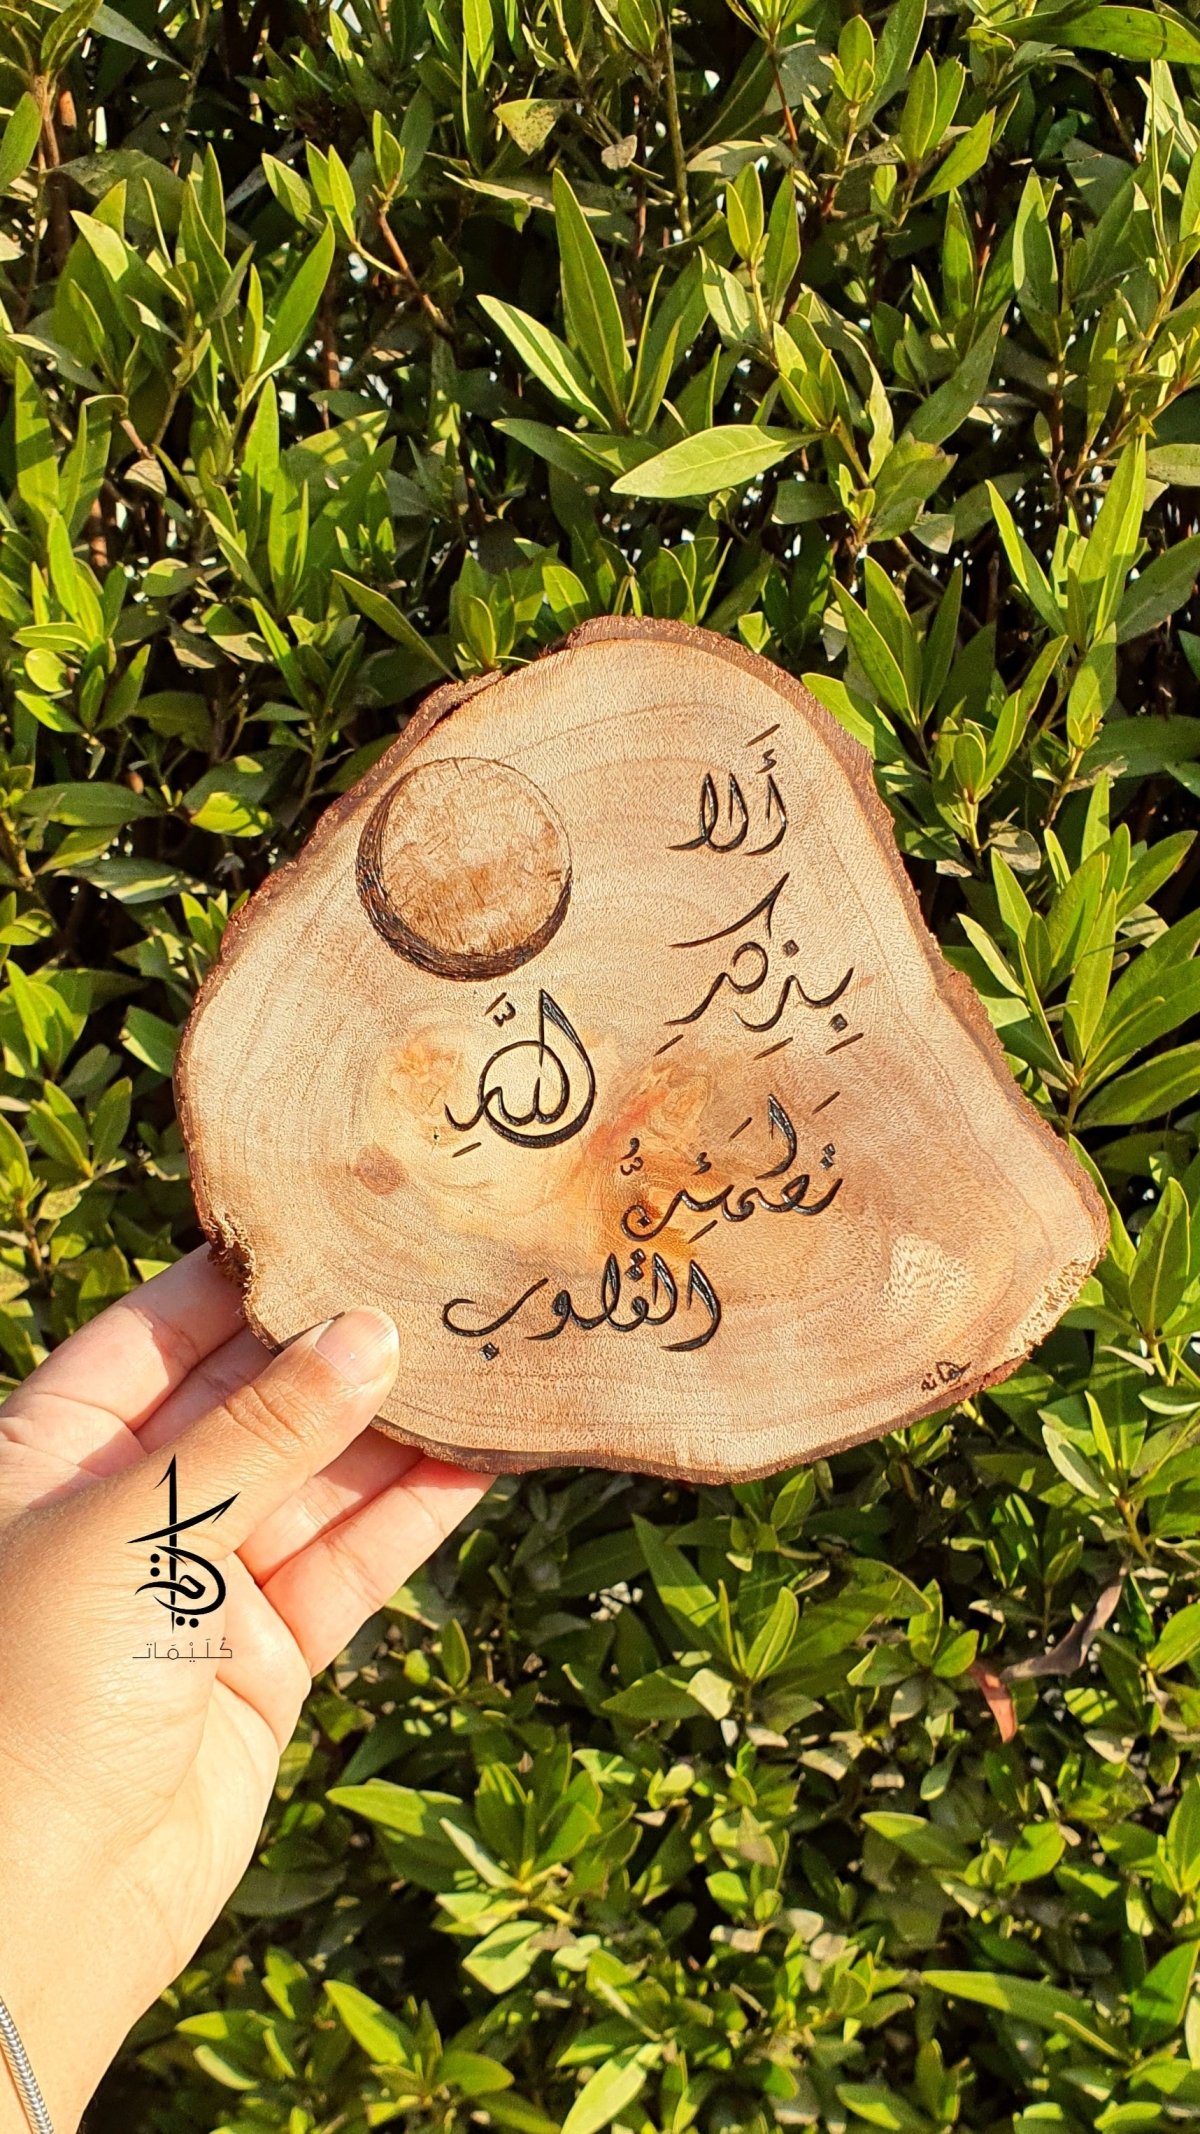 أَلَا
بِذِكْرِ
اللَّهِ
تَطْمَئِنُّ
الْقُلُوب
هانه
كُلَيْمَات